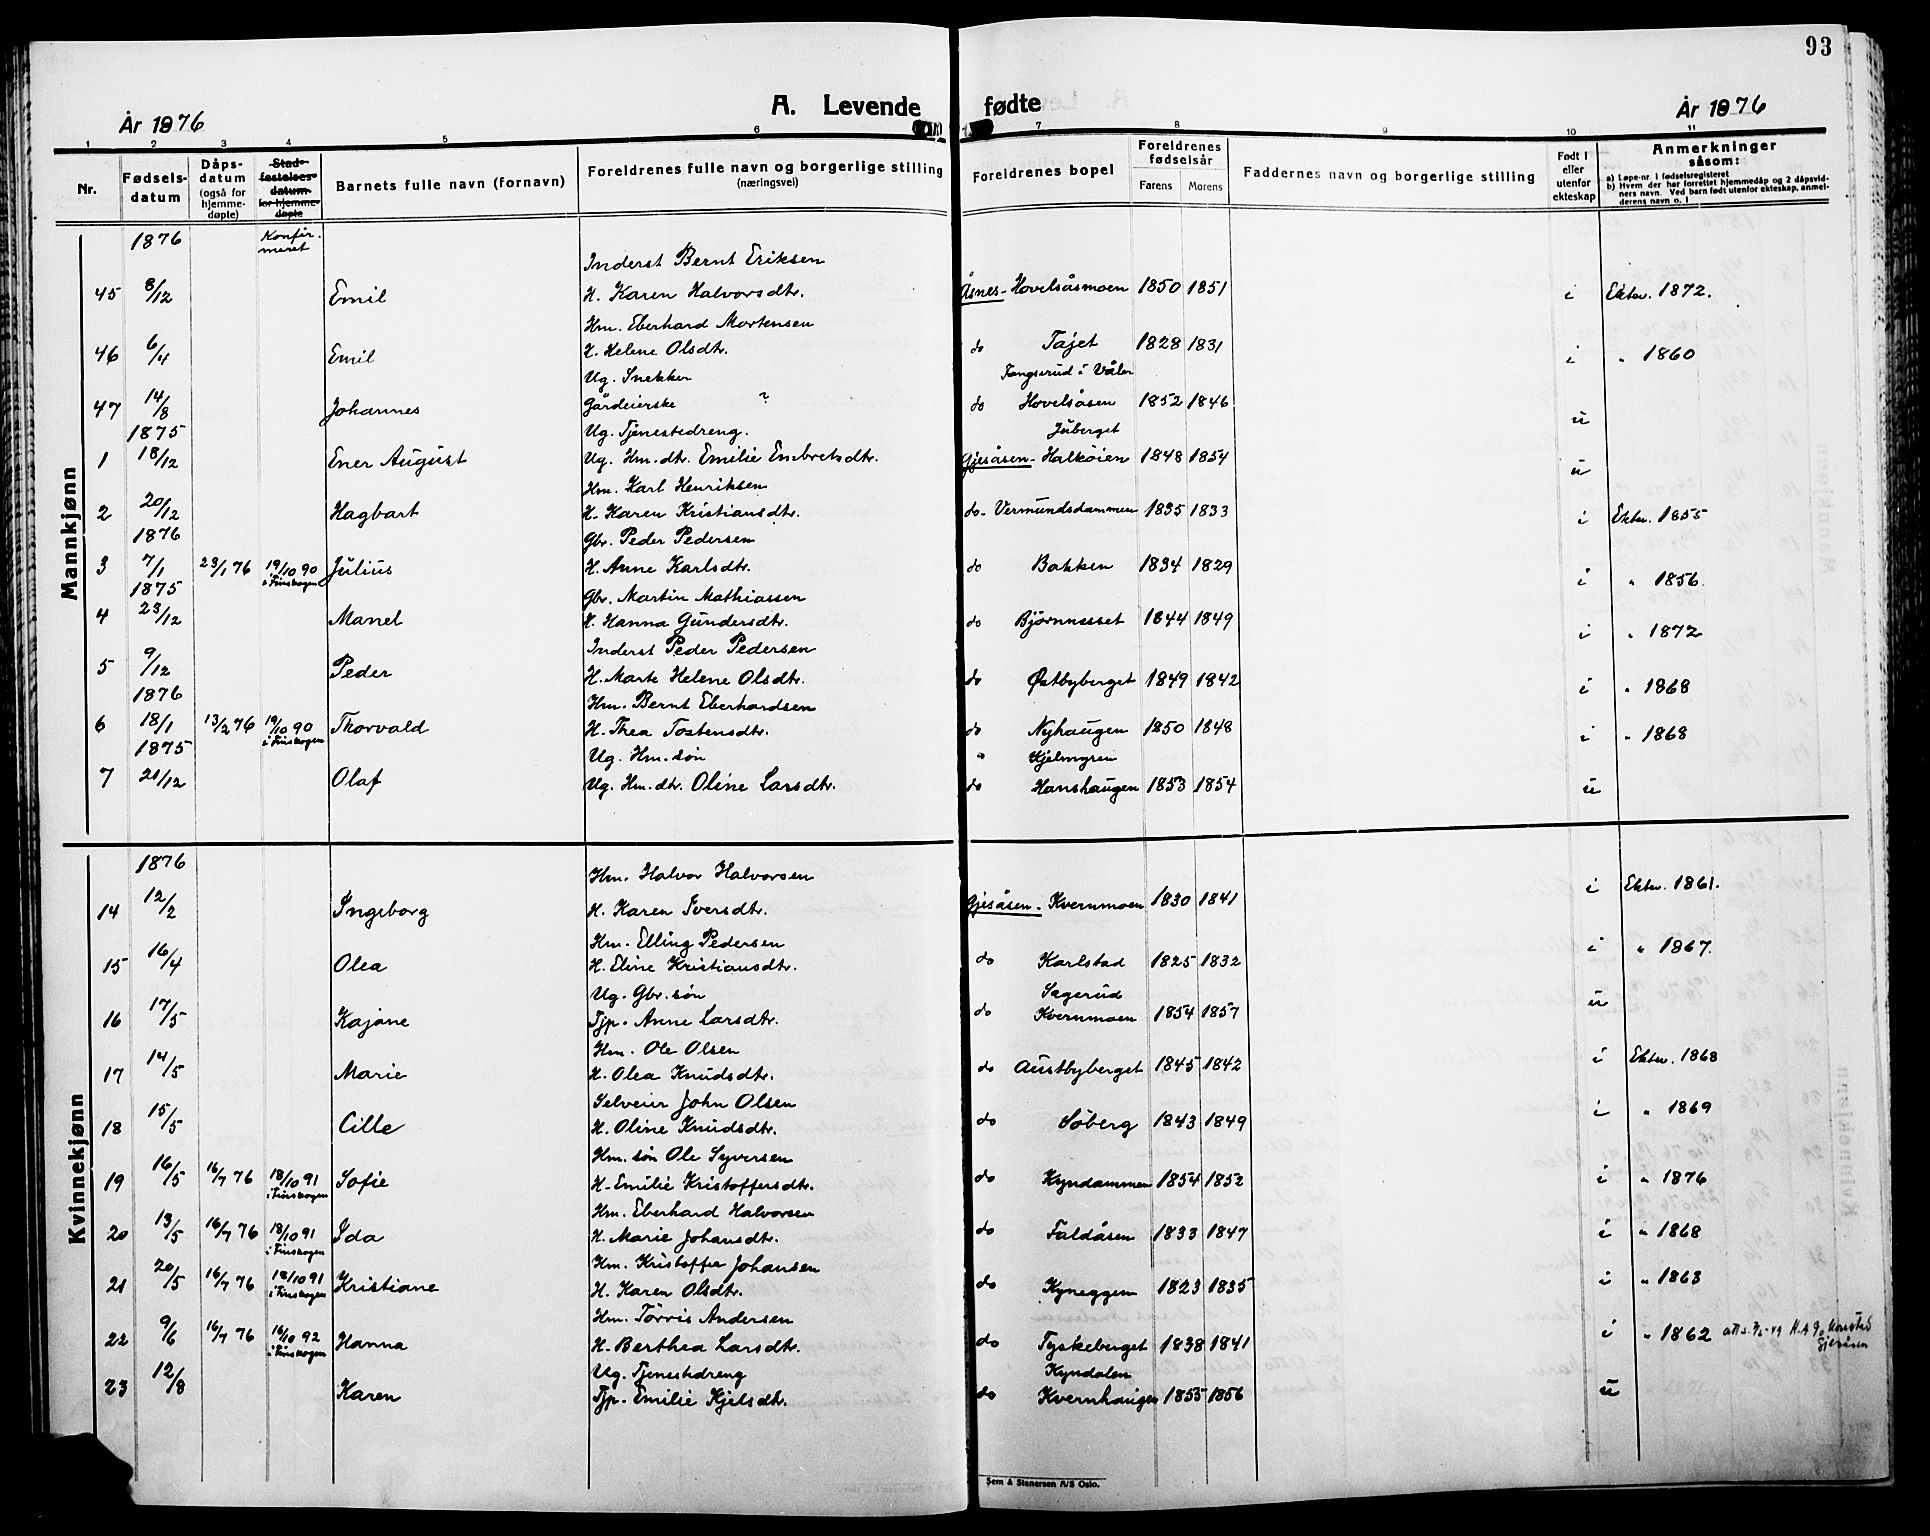 93
A. Levende fødte
År 1876
År 1876
1 2 3 4 5 6 7 8 9 10 11
Nr. Fødsels-datum Dåps-datum (også for hjemme-døpte) Stad-festelses-datum for hjemme-døpte Barnets fulle navn (fornavn) Foreldrenes fulle navn og borgerlige stilling (næringsvei) Foreldrenes bopel Foreldrenes fødselsår Farens Morens Faddernes navn og borgerlige stilling Født i eller utenfor ekteskap Anmerkninger såsom:
a) Løpe-nr. i fødselsregisteret
b) Hvem der har forrettet hjemmedåp og 2 dåpsvid-
ners navn. Ved barn født utenfor ekteskap, anmel-
derens navn o. l
Mannkjønn
1876 Konfir-
meret
Inderst Bernt Eriksen
45 8/12 Emil H. Karen Halvorsdtr. Åsnes- Hovelsåsmoen 1850 1851 i Ektev. 1872.
Hm. Eberhard Mortensen
46 6/4 Emil H. Helene Olsdtr. do Tajet 1828 1831 i " 1860
Ug. Snekker Tangserud i Våler
47 14/8 Johannes Gårdeierske ? do Hovelsåsen 1852 1846 u
1875 Ug. Tjenestedreng. Juberget
1 18/12 Ener August Ug. Hm. dtr. Emilie Embretsdtr. Gjesåsen- Halkøien 1848 1854 u
Hm. Karl Henriksen
2 20/12 Hagbart H. Karen Kristiansdtr. do- Vermundsdammen 1835 1833 i Ektev. 1855
1876 Gbr. Peder Pedersen
3 7/1 23/1 76 19/10 90 i Finskogen Julius H. Anne Karlsdtr. do Bakken 1834 1829 i " 1856.
1875 Gbr. Martin Mathiassen
4 23/12 Manel H. Hanna Gundersdtr. do Bjørnnesset 1844 1849 i " 1872
Inderst Peder Pedersen
5 9/12 Peder H. Marte Helene Olsdtr. do Østbyberget 1849 1842 i " 1868
1876 Hm. Bernt Eberhardsen
6 18/1 13/2 76 19/10 90 i Finskogen Thorvald H. Thea Tostensdtr. do Nyhaugen 1850 1848 i " 1868
1875 Ug. Hm. søn " Kjelmyren
7 21/12 Olaf Ug. Hm. dtr. Oline Larsdtr. do Hanshaugen 1853 1854 u
Kvinnekjønn
1876 Hm. Halvor Halvorsen
14 12/2 Ingeborg H. Karen Iversdtr. Gjesåsen- Kvernmoen 1830 1841 i Ektev. 1861.
Hm. Elling Pedersen
15 16/4 Olea H. Eline Kristiansdtr. do Karlstad 1825 1832 i " 1867.
Ug. Gbr. søn Sagerud
16 17/5 Kajane Tjp. Anne Larsdtr. do Kvernmoen 1854 1857 u
Hm. Ole Olsen
17 14/5 Marie H. Olea Knudsdtr. do Austbyberget 1845 1842 i Ektev. 1868
Selveier John Olsen
18 15/5 Cille H. Oline Knudsdtr. do Søberg 1843 1849 i " 1869
Hm. søn Ole Syversen
19 16/5 16/7 76 18/10 91 i Finskogen Sofie H. Emilie Kristoffersdtr. do Kyndammen 1854 1852 i " 1876
Hm. Eberhard Halvorsen
20 13/5 16/7 76 18/10 91 i Finskogen Ida H. Marie Johansdtr. do Faldåsen 1833 1847 i " 1868
Hm. Kristoffer Johansen
21 20/5 16/7 76 18/10 91 i Finskogen Kristiane H. Karen Olsdtr. do Kyneggen 1823 1835 i " 1863
Hm. Tørris Andersen
22 9/6 16/7 76 16/10 92 i Finskogen Hanna H. Berthea Larsdtr. do Tyskeberget 1838 1841 i " 1862 Gjesåsen
Ug. Tjenestdreng Kyndalen
23 12/8 Karen Tjp. Emilie Kjelsdtr. do Kvernhaugen 1855 1856 u
Sem & Stenersen A/S Oslo.